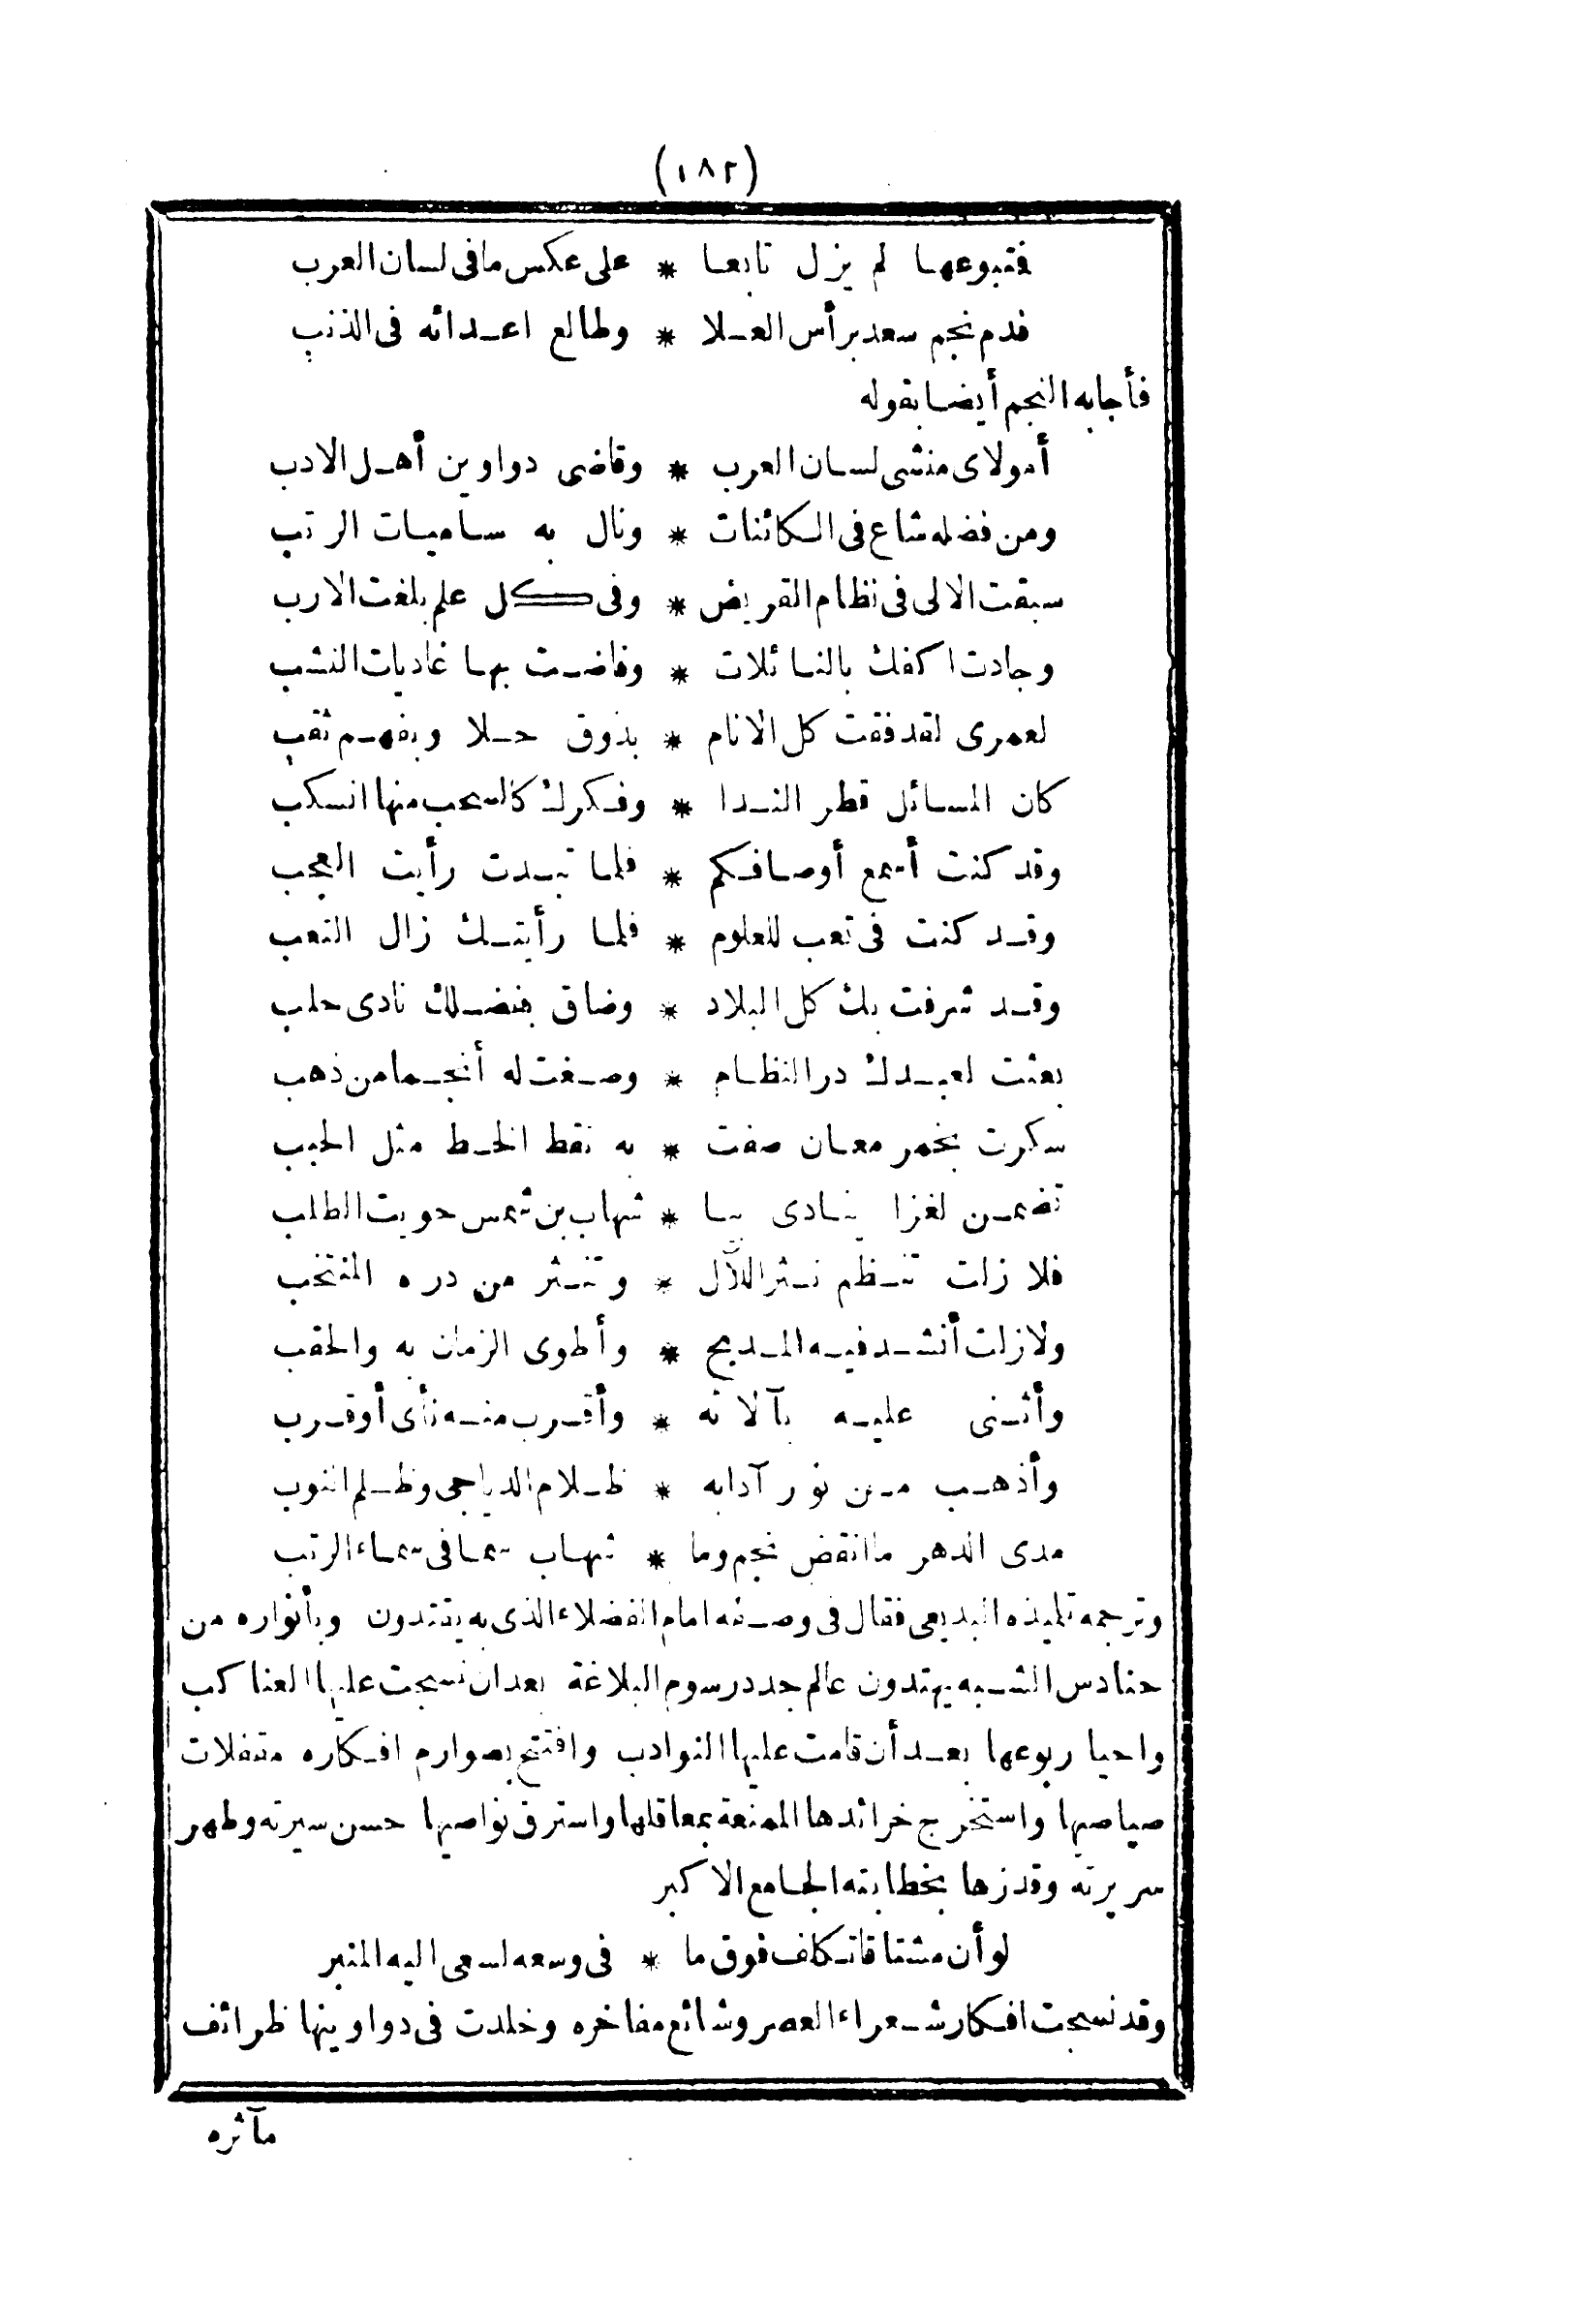 (١٨٢)
فتبوعها لم يزل تابعا * على عكس ما فى لسان العرب
فدم نجم سعد برأس العلا * وطالع اعدائه فى الذنب
فأجابه النجم أيضا بقوله
أمولاى منشى لسان العرب * وقاضى دواوين أهل الادب
ومن فضله شاع فى الكائنات * ونال به ساميات الرتب
سبقت الالى فى نظام القريض * وفى كل علم بلغت الارب
وجادت اكفك بالنائلات * وفاضت بها غاديات النشب
لعمرى لقد فقت كل الانام * بذوق حلا وبفهم ثقب
كان المسائل قطر الندا * وفكرك كالسحب منها انسكب
وقد كنت أسمع أوصافكم * فلما تبدت رأيت العجب
وقد كنت فى تعب للعلوم * فلما رأيتك زال التعب
وقد شرفت بك كل البلاد * وضاق بفضلك نادى حلب
بعثت لعبدك در النظام * وصغت له أنجما من ذهب
سكرت بخمر معان صفت * به نقط الخط مثل الحبب
تضمن لغزا ينادى بيا * شهاب بن شمس حويت الطلب
فلا زلت تنظم نثر اللآل * وتنثر من دره المنتخب
ولا زلت أنشد فيه المديح * وأطوى الزمان به والحقب
وأثنى عليه بآلائه * وأقرب منه نأى أو قرب
وأذهب من نور آدابه * ظلام الدياجى وظلم النوب
مدى الدهر ما انقض نجم وما * شهاب سما فى سماء الرتب
وترجمه تلميذه البديعى فقال فى وصفه امام الفضلاء الذى به يقتدون وبأنواره من
حنادس الشبه يهتدون عالم جدد رسوم البلاغة بعد ان نسجت عليها العناكب
واحيا ربوعها بعد أن قامت عليها النوادب وافتتح بصوارم افكاره مقفلات
صياصيها واستخرج خرائدها الممنعة بمعاقلها واسترق نواصيها حسن سيرته وطهر
سريرته وقد زها بخطابته الجامع الاكبر
لو أن مشتاقا تكلف فوق ما * فى وسعه لسعى اليه المنبر
وقد نسجت افكار شعراء العصر وشائع مفاخره وخلدت فى دواوينها ظرائف
مآثره